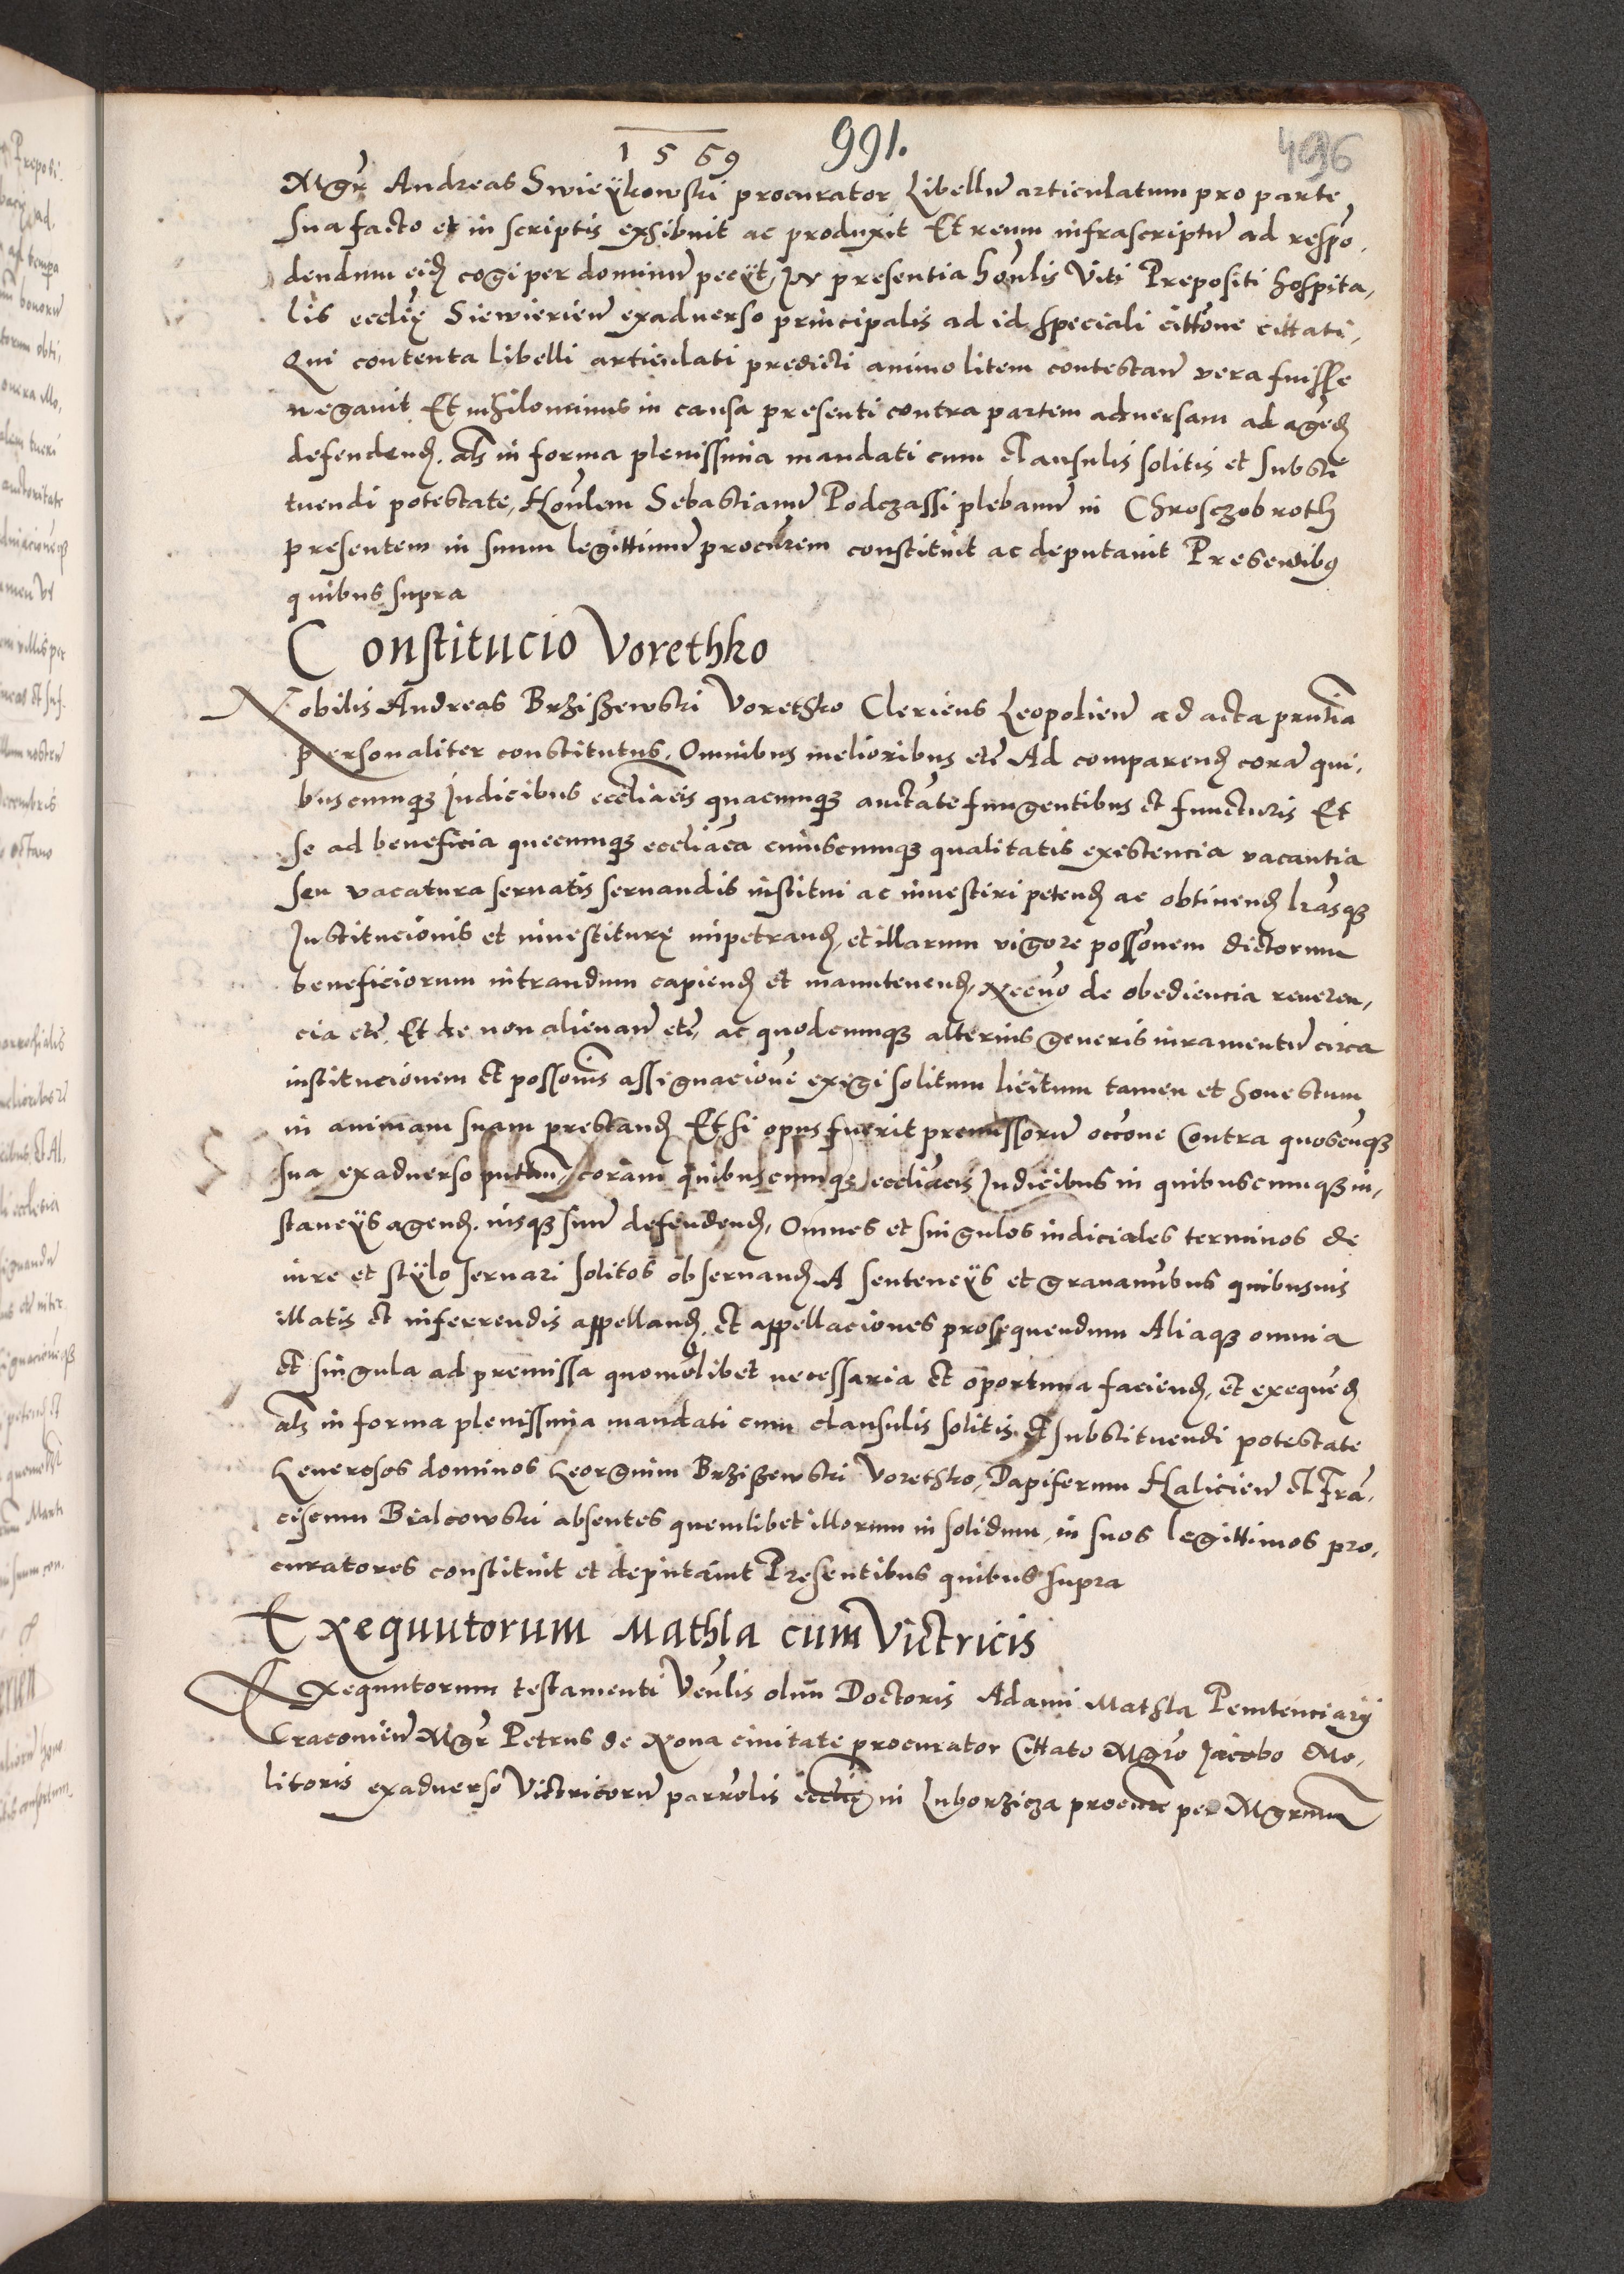 1559 991. 496
Mgr̃ Andreas Swieÿkowski procurator Libellũ articulatum pro parte
sua facto et in scriptis exhibuit ac produxit Et reum infrascriptũ ad respõ,
dendum eidẽ cogi per dominũ peciit, In presentia hoñlis Viti Prepositi hospita,
lis eccliȩ Siewierieñ exadverso principalis ad id speciali cittõne cittati,
Qui contenta libelli articulati predicti animo litem contestañ vera fuisse
negavit Et nihilominus in causa presenti contra partem adversam ad agẽd
defendend̃. als̃ in forma plenissima mandati cum clausulis solitis et substi
tuendi potestate, Hoñlem Sebastianũ Podczassi plebanũ in Chrosczobroth
presentem in suum legittimũ procũrem constituit ac deputavit Presentibus
quibus supra
Constitucio Vorethko
Nobilis Andreas Brziszewski Vorethko Clericus Leopolieñ ad acta pr̃ntia
personaliter constitutus, Omnibus melioribus etc̃ Ad comparend̃ corã qui,
buscumqȝ Judicibus eccliãcis quacumqȝ auctãte fungentibus et functuris Et
se ad beneficia quecumqȝ eccliãca cuiuscumqȝ qualitatis existencia vacantia
seu vacatura servatis servandis institui ac investiri petend̃ ac obtinend̃ lr̃asqȝ
Institucionis et investiturȩ impetrand̃, et illarum vigore possõnem dictorum
beneficiorum intrandum capiend̃ et manutenend̃, Necnõ de obediencia reveren,
cia etc̃. Et de non alienañ etc̃, ac quodcumqȝ alterius generis iuramentũ circa
institucionem et possõnis assignacionẽ exigi solitum licitum tamen et honestum
in animam suam prestand̃ Et si opus fuerit premissorũ occõne Contra quoscũqȝ
sua exadverso putañ, coram quibuscumqȝ eccliãcis Judicibus in quibuscumqȝ in,
stancÿs agend̃. iusqȝ suũ defendend̃, Omnes et singulos iudiciales terminos de
iure et stÿlo servari solitos observand̃ A sentencÿs et gravam̃ibus quibusvis
illatis et inferrendis appelland̃. et appellaciones prosequendum Aliaqȝ omnia
et singula ad premissa quomõlibet necessaria et oportuna faciend̃, et exequẽd
als̃ in forma plenissima mandati cum clausulis solitis Et substituendi potestate
Generosos dominos Georgium Brziszewski Vorethko, Dapiferum Halicieñ et Frã,
ciscum Bialcowski absentes quemlibet illorum in solidum, in suos legittimos pro,
curatores constituit et deputavit Presentibus quibus supra
Exequutorum Mathla cum Victricis
Exequutorum testamenti Veñlis olim Doctoris Adami Mathla Penitenciarÿ
Cracovieñ Mgr̃ Petrus de Nova civitate procurator Cittato Mgrõ Jacobo Mo,
litoris exadverso Victricorũ parr̃olis eccliȩ in Luborzicza procũre per Mgrum